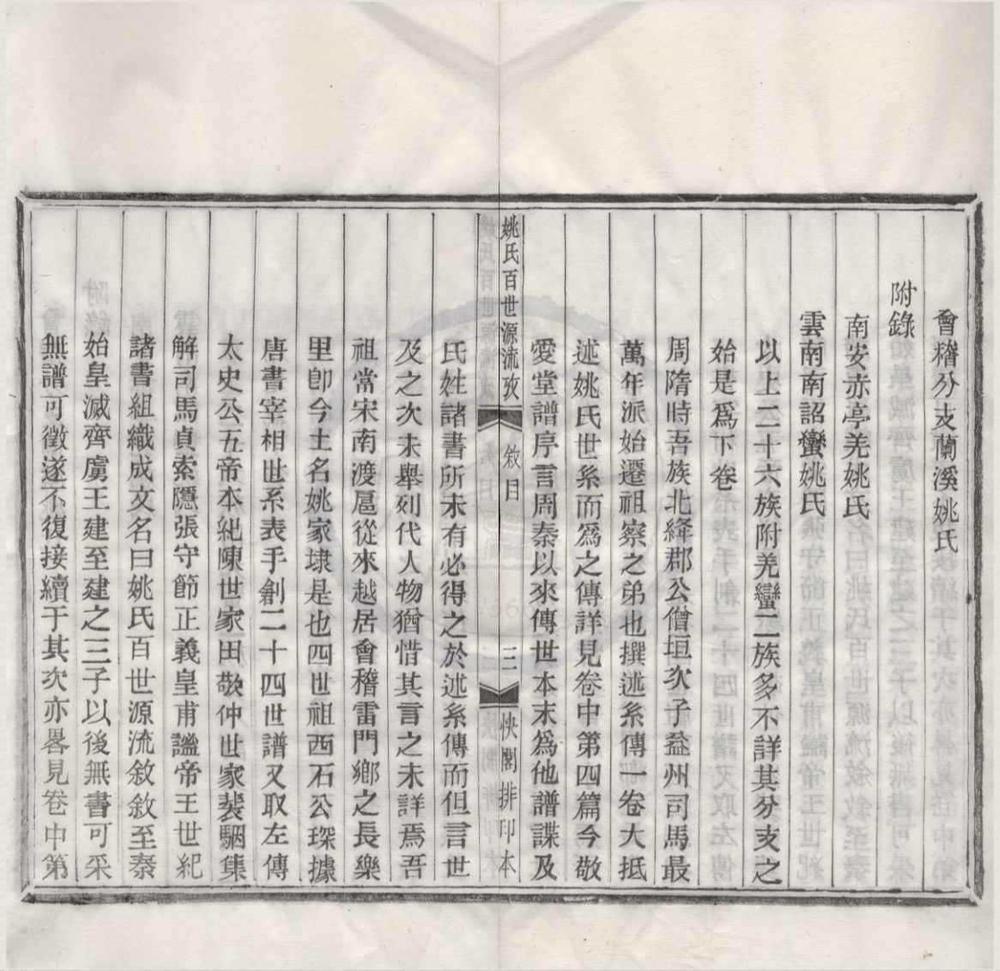 會稽分支蘭溪姚氏
附錄
南安赤亭羌姚氏
雲南南詔蠻姚氏
以上二十六族附羌蠻二族多不詳其分支之
始是爲下卷
周隋時吾族北絳郡公僧垣次子益州司馬最
萬年派始遷祖察之弟也撰述系傳一卷大抵
述姚氏世系而爲之傳詳見卷中第四篇今敬
愛堂譜序言周秦以來傳世本末爲他譜諜及
姚氏百世源流攷
敘目
三
快閣排印本
氏姓諸書所未有必得之於述系傳而但言世
及之次未舉列代人物猶惜其言之未詳焉吾
祖當宋南渡扈從來越居會稽雷門鄉之長樂
里卽今土名姚家埭是也四世祖西石公琛據
唐書宰相世系表手創二十四世譜又取左傳
太史公五帝本紀陳世家田敬仲世家裴駰集
解司馬貞索隱張守節正義皇甫謐帝王世紀
諸書組織成文名曰姚氏百世源流敘敘至秦
始皇滅齊虜王建至建之三子以後無書可采
無譜可徵遂不復接續于其次亦畧見卷中第